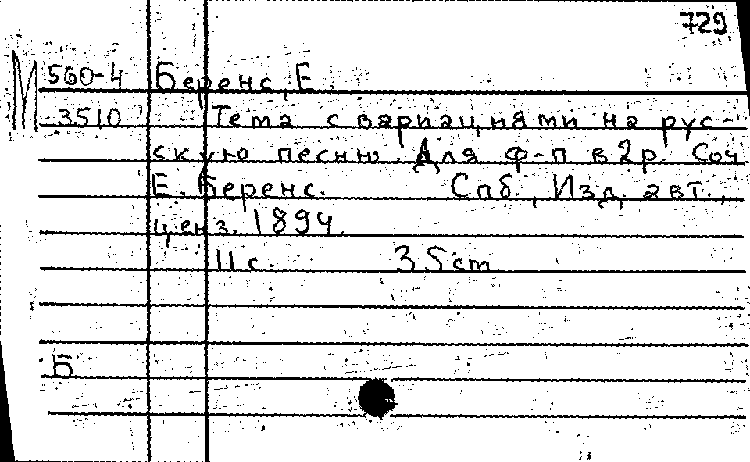 729
М 560-4 Беренс, Е.
3510 Тема с вариациями на рус-
скую песню. Для ф-п в 2 р. Соч
Е. Беренс. Спб., Изд. авт.,
ценз. 1894.
11 с. 35 cm
Б